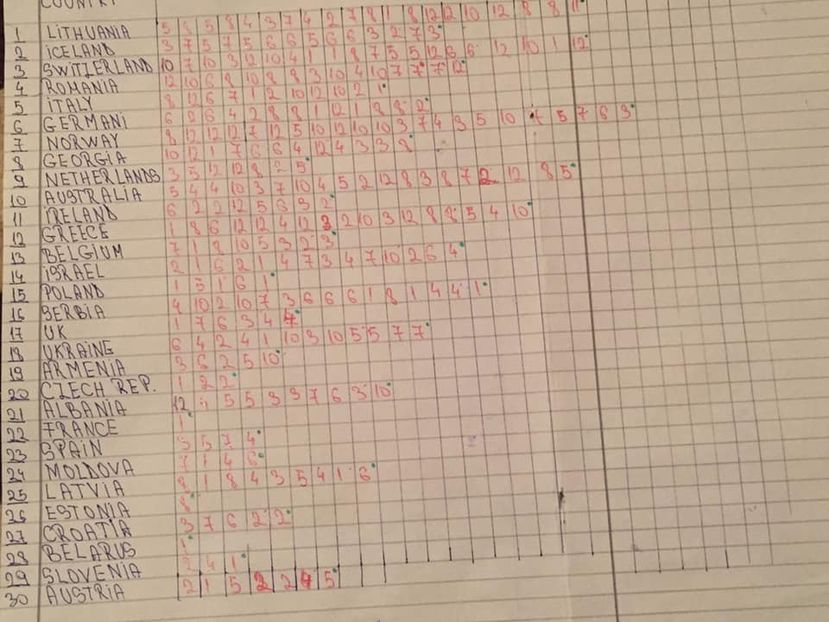 COUNTRY
1 LITHUANIA 5 8 5 8 4 3 7 4 2 7 8 1 8 12 12 10 12 8 8 11
2 ICELAND 3 7 5 7 5 6 6 5 6 6 3 2 7 3
3 SWITZERLAND 10 7 10 3 12 10 4 1 1 8 7 5 5 12 8 6 12 10 1 12
4 ROMANIA 12 10 6 8 10 8 8 3 10 4 10 7 7 7 12
5 ITALY 8 12 6 7 1 2 10 12 10 2 1
6 GERMANI 6 8 6 4 2 8 8 1 12 1 8 8 2
7 NORWAY 8 12 12 12 7 12 5 10 12 10 10 3 7 4 3 5 10 5 7 6 3
8 GEORGIA 10 12 1 7 6 6 4 12 4 3 3 8
9 NETHERLANDS 3 5 12 12 8 2 5
10 AUSTRALIA 5 4 4 10 3 7 10 4 5 2 12 8 3 8 7 2 12 8 5
11 IRELAND 6 2 2 12 5 3 3 2
12 GREECE 1 8 6 12 12 4 12 3 2 10 3 12 8 8 5 4 10
13 BELGIUM 7 1 8 10 5 3 2 3
14 ISRAEL 2 1 6 2 1 4 7 3 4 7 10 2 6 4
15 POLAND 1 5 1 6 1
16 SERBIA 4 10 2 10 7 3 6 6 6 1 8 1 4 4 1
17 UK 1 7 6 3 4 4
18 UKRAINE 6 4 2 4 1 10 3 10 5 5 7 7
19 ARMENIA 3 6 2 5 10
20 CZECH REP. 1 2 2
21 ALBANIA 12 5 5 3 3 7 6 3 10
22 FRANCE 1
23 SPAIN 3 5 7 4
24 MOLDOVA 7 1 4 6
25 LATVIA 8 1 8 4 3 5 4 1 6
26 ESTONIA 8
27 CROATIA 3 7 6 2 2
28 BELARUS 1
29 SLOVENIA 2 4 1
30 AUSTRIA 2 1 5 2 2 4 5